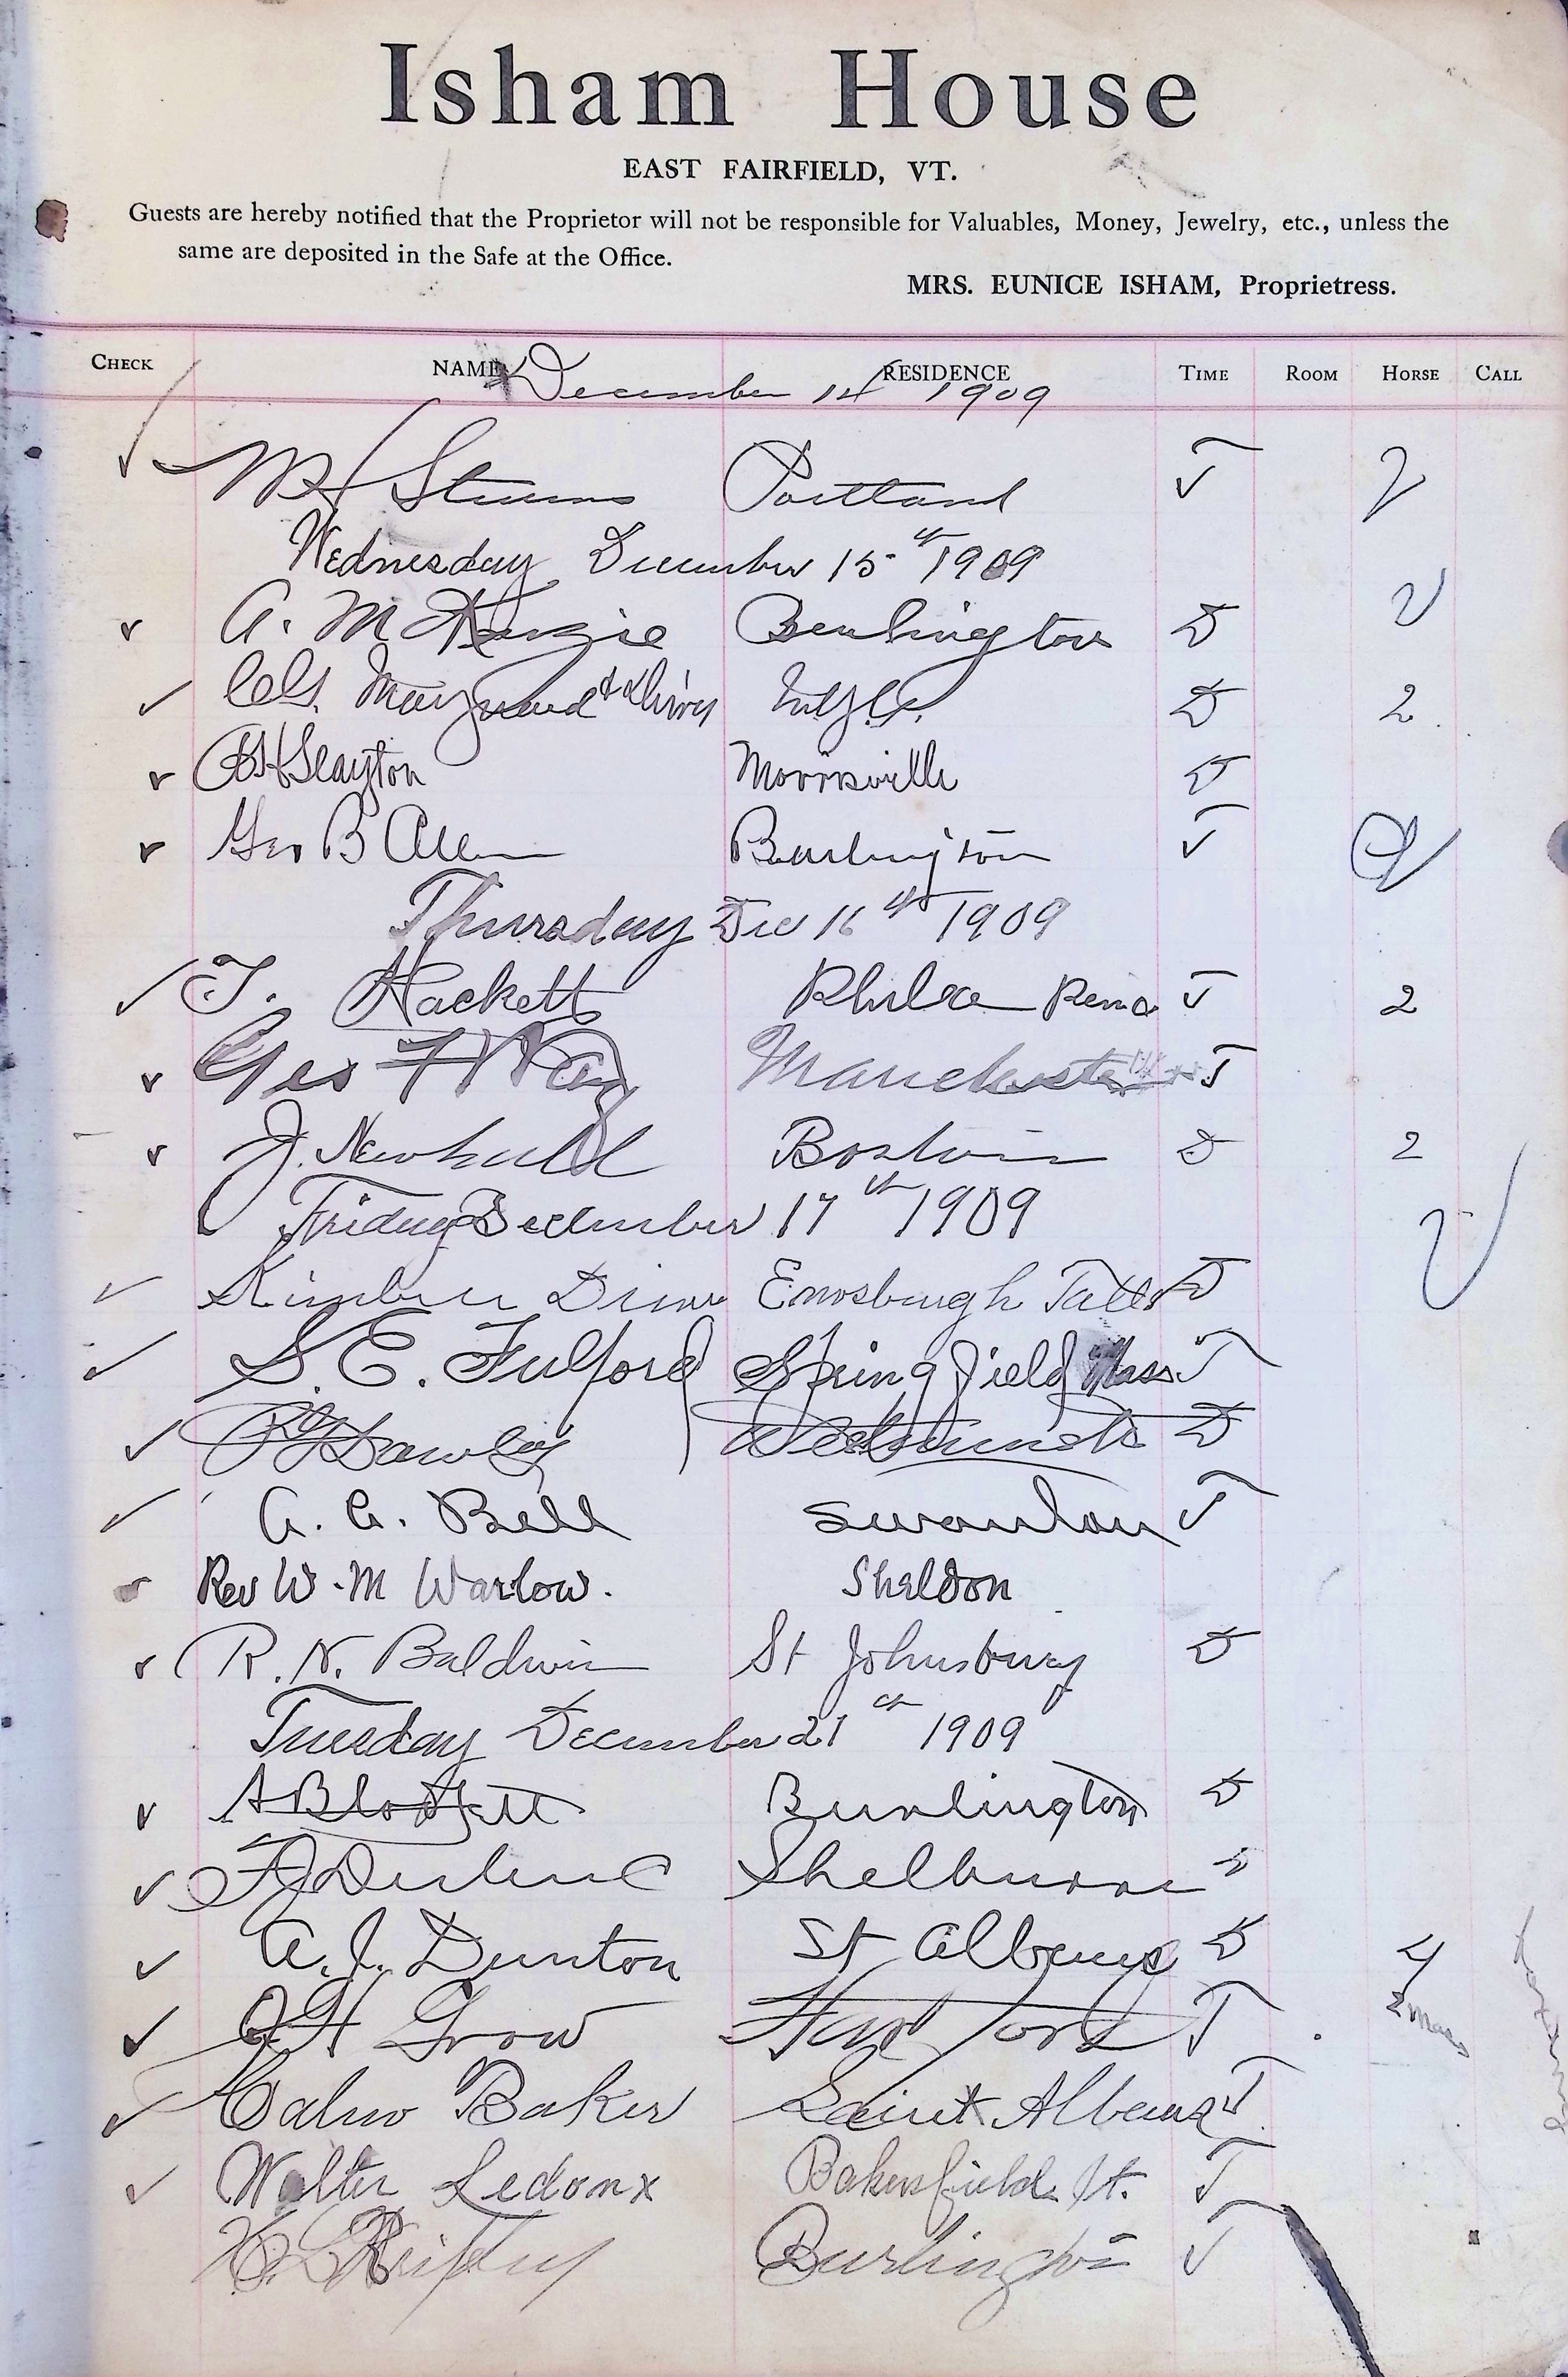 Isham House
EAST FAIRFIELD, VT.
Guests are hereby notified that the Proprietor will not be responsible for Valuables, Money, Jewelry, etc., unless the
same are deposited in the Safe at the Office.
MRS. EUNICE ISHAM, Proprietress.
CHECK NAME RESIDENCE TIME ROOM HORSE CALL
December 14 1909
Portland
Wednesday December 15th 1909
A. McKenzie Burlington D
D 2
Slayton Morrisville D
Geo B Allen Burlington
Thursday Dec 16th 1909
T. Hackett Phila Penna 2
Geo F Way Manchester
J. Newhall Boston D 2
Friday December 17th 1909
Enosburgh Falls D
S. C. Fulford Springfield Mass
D
A. G. Bell Swanton
Rev W. M Warlow. Sheldon
R. N. Baldwin St Johnsbury D
Tuesday December 21 1909
A Blodgett Burlington D
Shelburne D
A. J. Dunton St Albans D 4
Grow New York
Baker Saint Albans
Walter Ledoux Bakersfield Vt.
Burlington